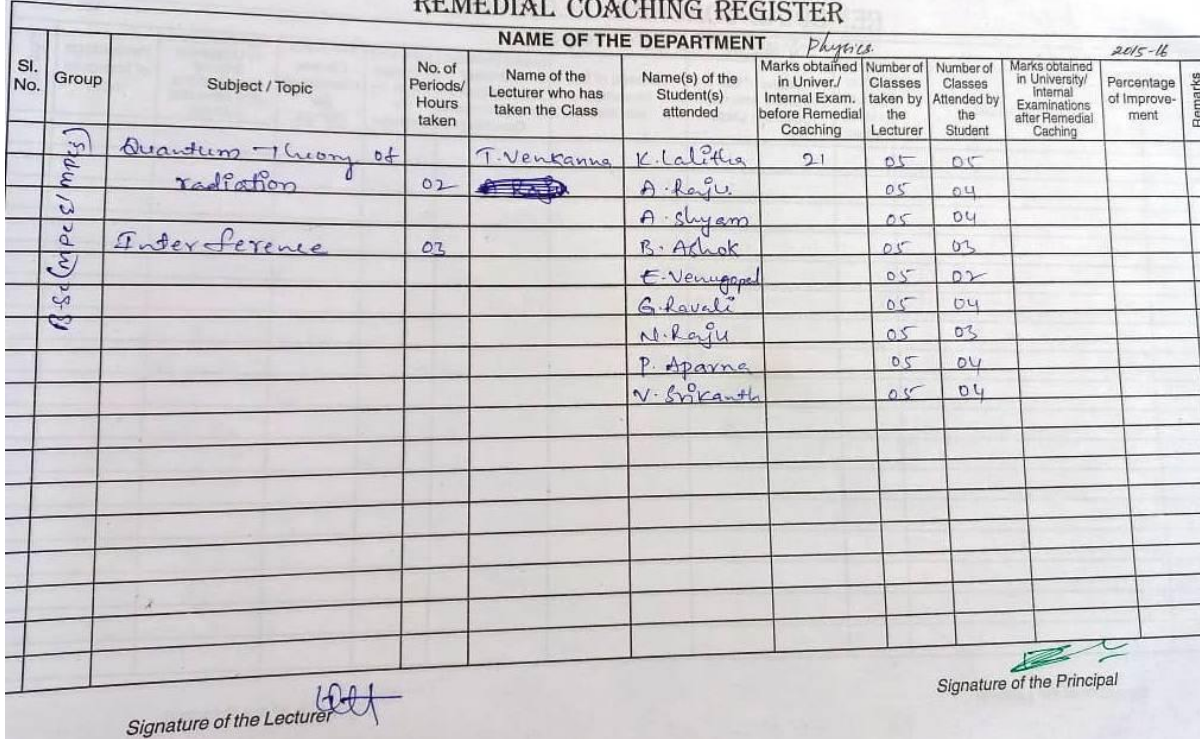 REMEDIAL COACHING REGISTER
NAME OF THE DEPARTMENT Physics. 2015-16
Sl. No. Group Subject / Topic No. of Periods/ Hours taken Name of the Lecturer who has taken the Class Name(s) of the Student(s) attended Marks obtained in Univer./ Internal Exam. before Remedial Coaching Number of Classes taken by the Lecturer Number of Classes Attended by the Student Marks obtained in University/ Internal Examinations after Remedial Caching Percentage of Improve- ment Remarks
B.Sc (MPC / 3 MPCs)
Quantum Theory of T. Venkanna K. Lalitha 21 05 05
radiation 02 A. Raju. 05 04
A. Shyam 05 04
Interference 03 B. Ashok 05 03
E. Venugopal 05 02
G. Ravali 05 04
N. Raju 05 03
P. Aparna 05 04
V. Srikanth 05 04
Signature of the Lecturer
Signature of the Principal